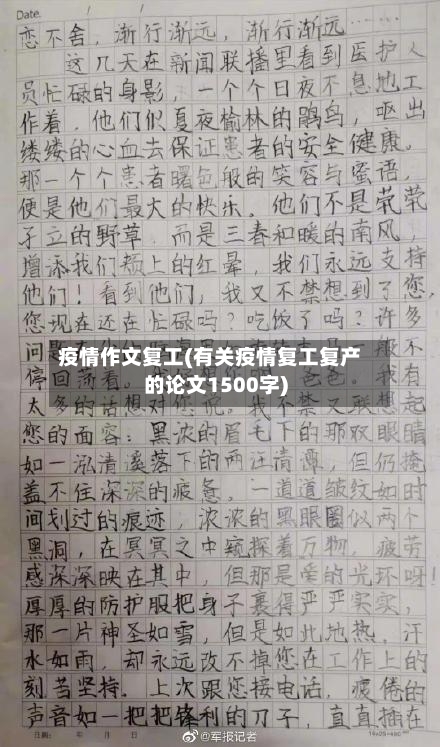 Date.
恋不舍，渐行渐远，渐行渐远……
这几天在新闻联播里看到医护人
员忙碌的身影，一个个日夜不息地工
作着，他们似夏夜榆林的鹃鸟，呕出
缕缕的心血去保证患者的安全健康。
那一个个患者曙色般的笑容与蜜语，
便是他们最大的快乐。他们不是茕茕
孑立的野草，而是三春和暖的南风，
增添我们颊上的红晕，我们永远支持
他们！看到他们，我又不禁想到了您，
您现在还在忙碌吗？吃饭了吗？许多
问题
疫情作文复工(有关疫情复工复产
停回荡着。爸爸。我有
的论文1500字)
太多的话想对您说。我不禁又联想起
您的面容：黑浓的眉毛下的那双眼睛
如一泓清溪落下的两汪清潭，但仍掩
盖不住深深的疲惫。一道道皱纹如时
间划过的痕迹，浓浓的黑眼圈似两个
黑洞，在冥冥之中窥探着万物，疲劳
感深深映在其中，但那是爱的光环呀！
厚厚的防护服把身子裹得严严实实，
那一片神圣如雪，但是如此地热，汗
水如雨，却永远改不掉您在工作上的
刻苦坚持。上次跟您接电话，疲倦的
声音如一把把锋利的刀子，直直插在
日期： 年 月 日
@军报记者